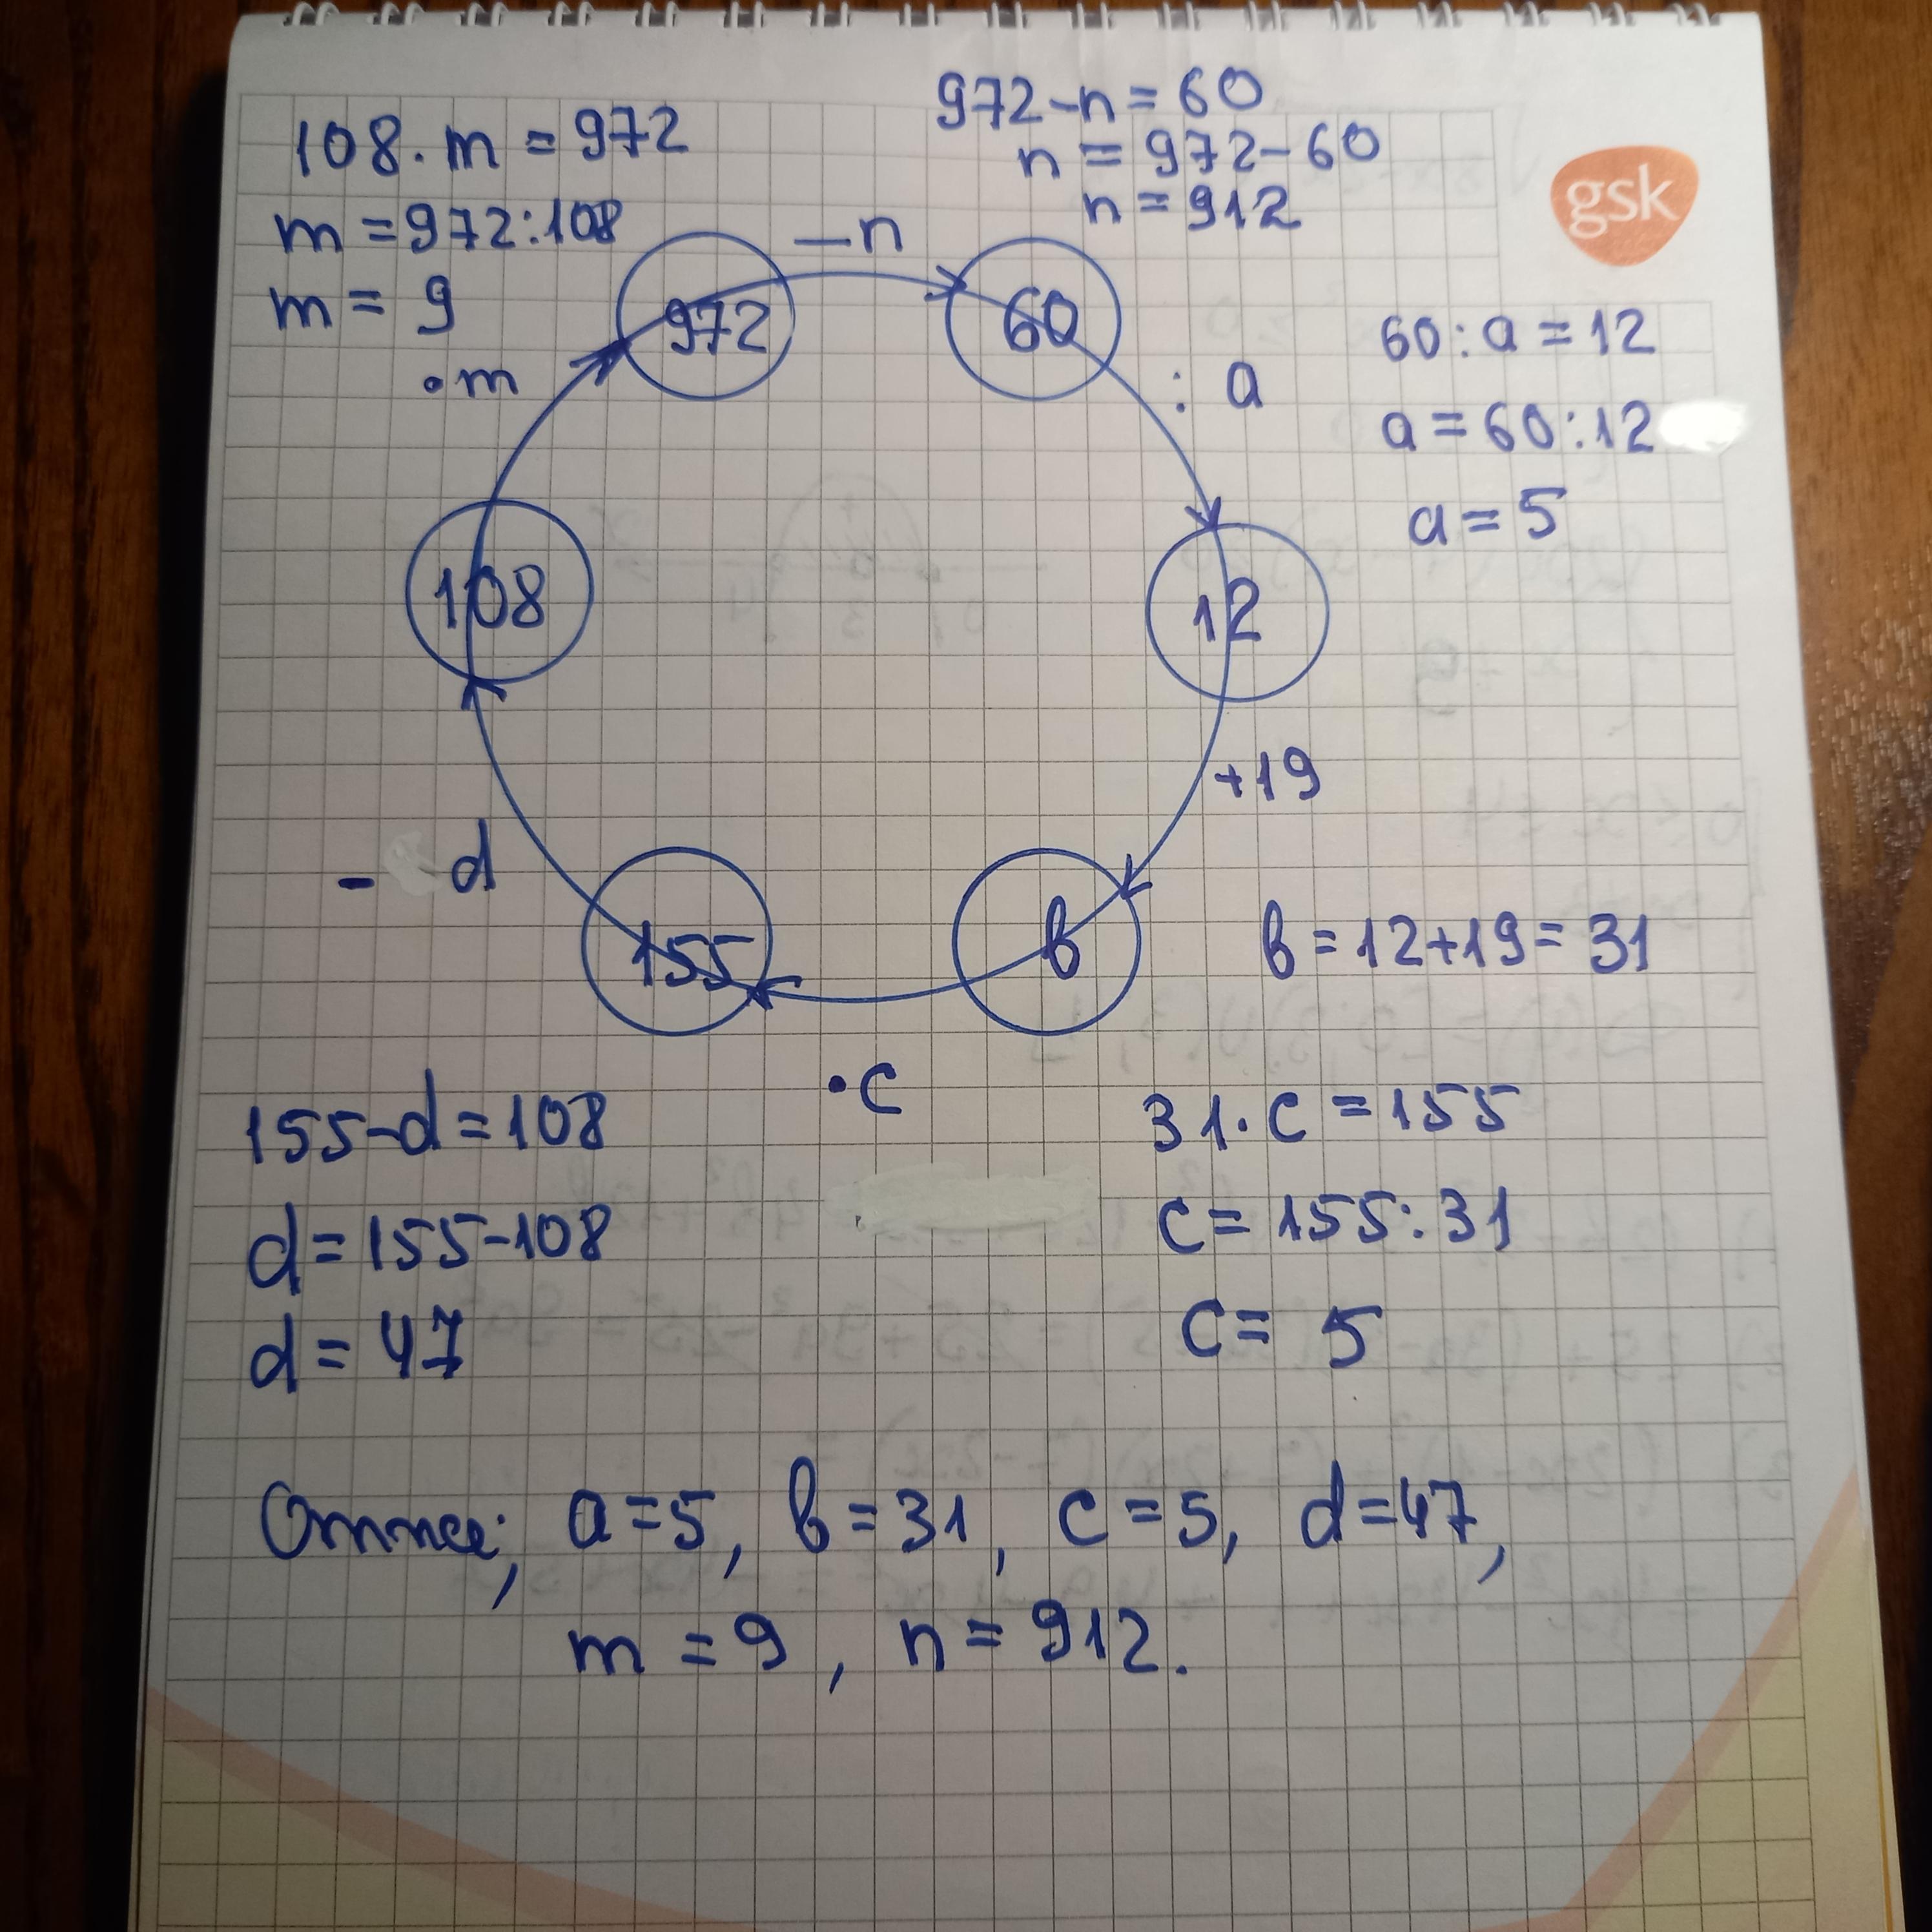 108·m=972
m=972:108
m=9
972-n=60
n=972-60
n=912
gsk
·m
972
-n
60
:a
60:a=12
a=60:12
a=5
108
12
+19
-d
155
в
в=12+19=31
·c
155-d=108
d=155-108
d=47
31·c=155
c=155:31
c=5
a=5, в=31, c=5, d=47,
m=9, n=912.